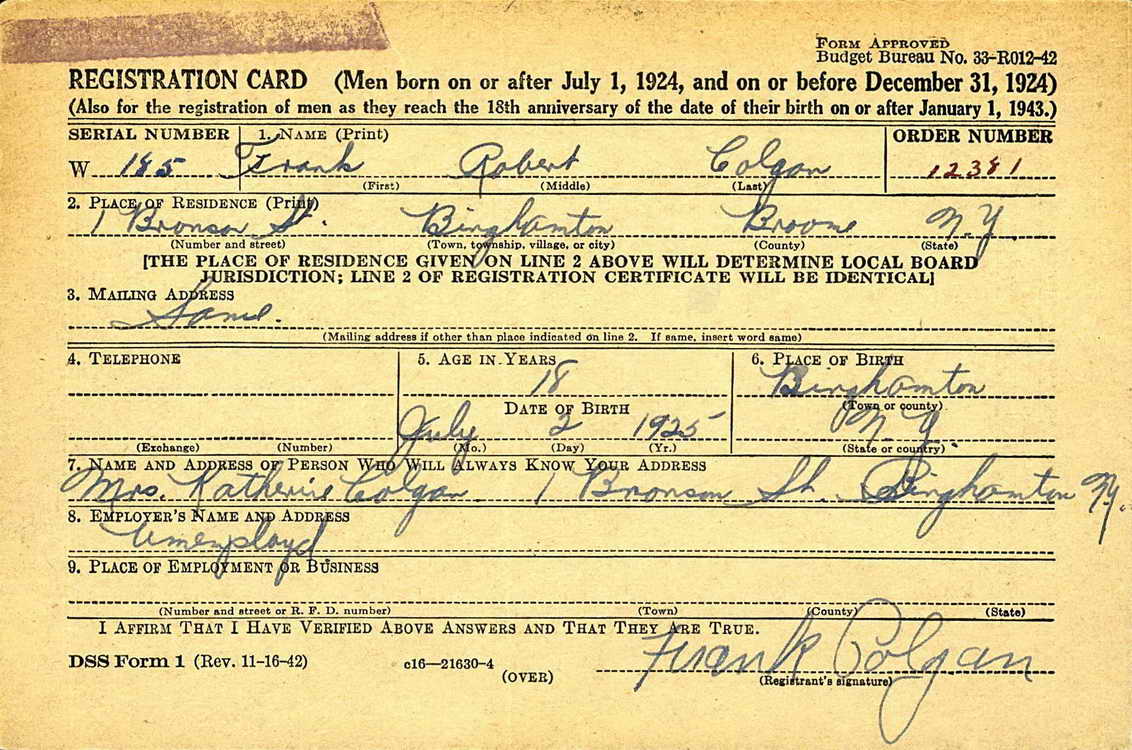 FORM APPROVED
Budget Bureau No. 33-R012-42
REGISTRATION CARD (Men born on or after July 1, 1924, and on or before December 31, 1924)
(Also for the registration of men as they reach the 18th anniversary of the date of their birth on or after January 1, 1943.)
SERIAL NUMBER 1. NAME (Print) ORDER NUMBER
W 185 Frank Robert Colgan 12381
(First) (Middle) (Last)
2. PLACE OF RESIDENCE (Print)
1 Bronson St. Binghamton Broome N.Y.
(Number and street) (Town, township, village, or city) (County) (State)
[THE PLACE OF RESIDENCE GIVEN ON LINE 2 ABOVE WILL DETERMINE LOCAL BOARD
JURISDICTION; LINE 2 OF REGISTRATION CERTIFICATE WILL BE IDENTICAL]
3. MAILING ADDRESS
Same.
(Mailing address if other than place indicated on line 2. If same, insert word same)
4. TELEPHONE 5. AGE IN YEARS 6. PLACE OF BIRTH
18 Binghamton
DATE OF BIRTH (Town or county)
July 2 1925 N.Y.
(Exchange) (Number) (Mo.) (Day) (Yr.) (State or country)
7. NAME AND ADDRESS OF PERSON WHO WILL ALWAYS KNOW YOUR ADDRESS
Mrs. Katherine Colgan 1 Bronson St. Binghamton N.Y.
8. EMPLOYER'S NAME AND ADDRESS
Unemployd.
9. PLACE OF EMPLOYMENT OR BUSINESS
(Number and street or R. F. D. number) (Town) (County) (State)
I AFFIRM THAT I HAVE VERIFIED ABOVE ANSWERS AND THAT THEY ARE TRUE.
DSS Form 1 (Rev. 11-16-42) c16—21630-4 Frank Colgan
(OVER) (Registrant's signature)